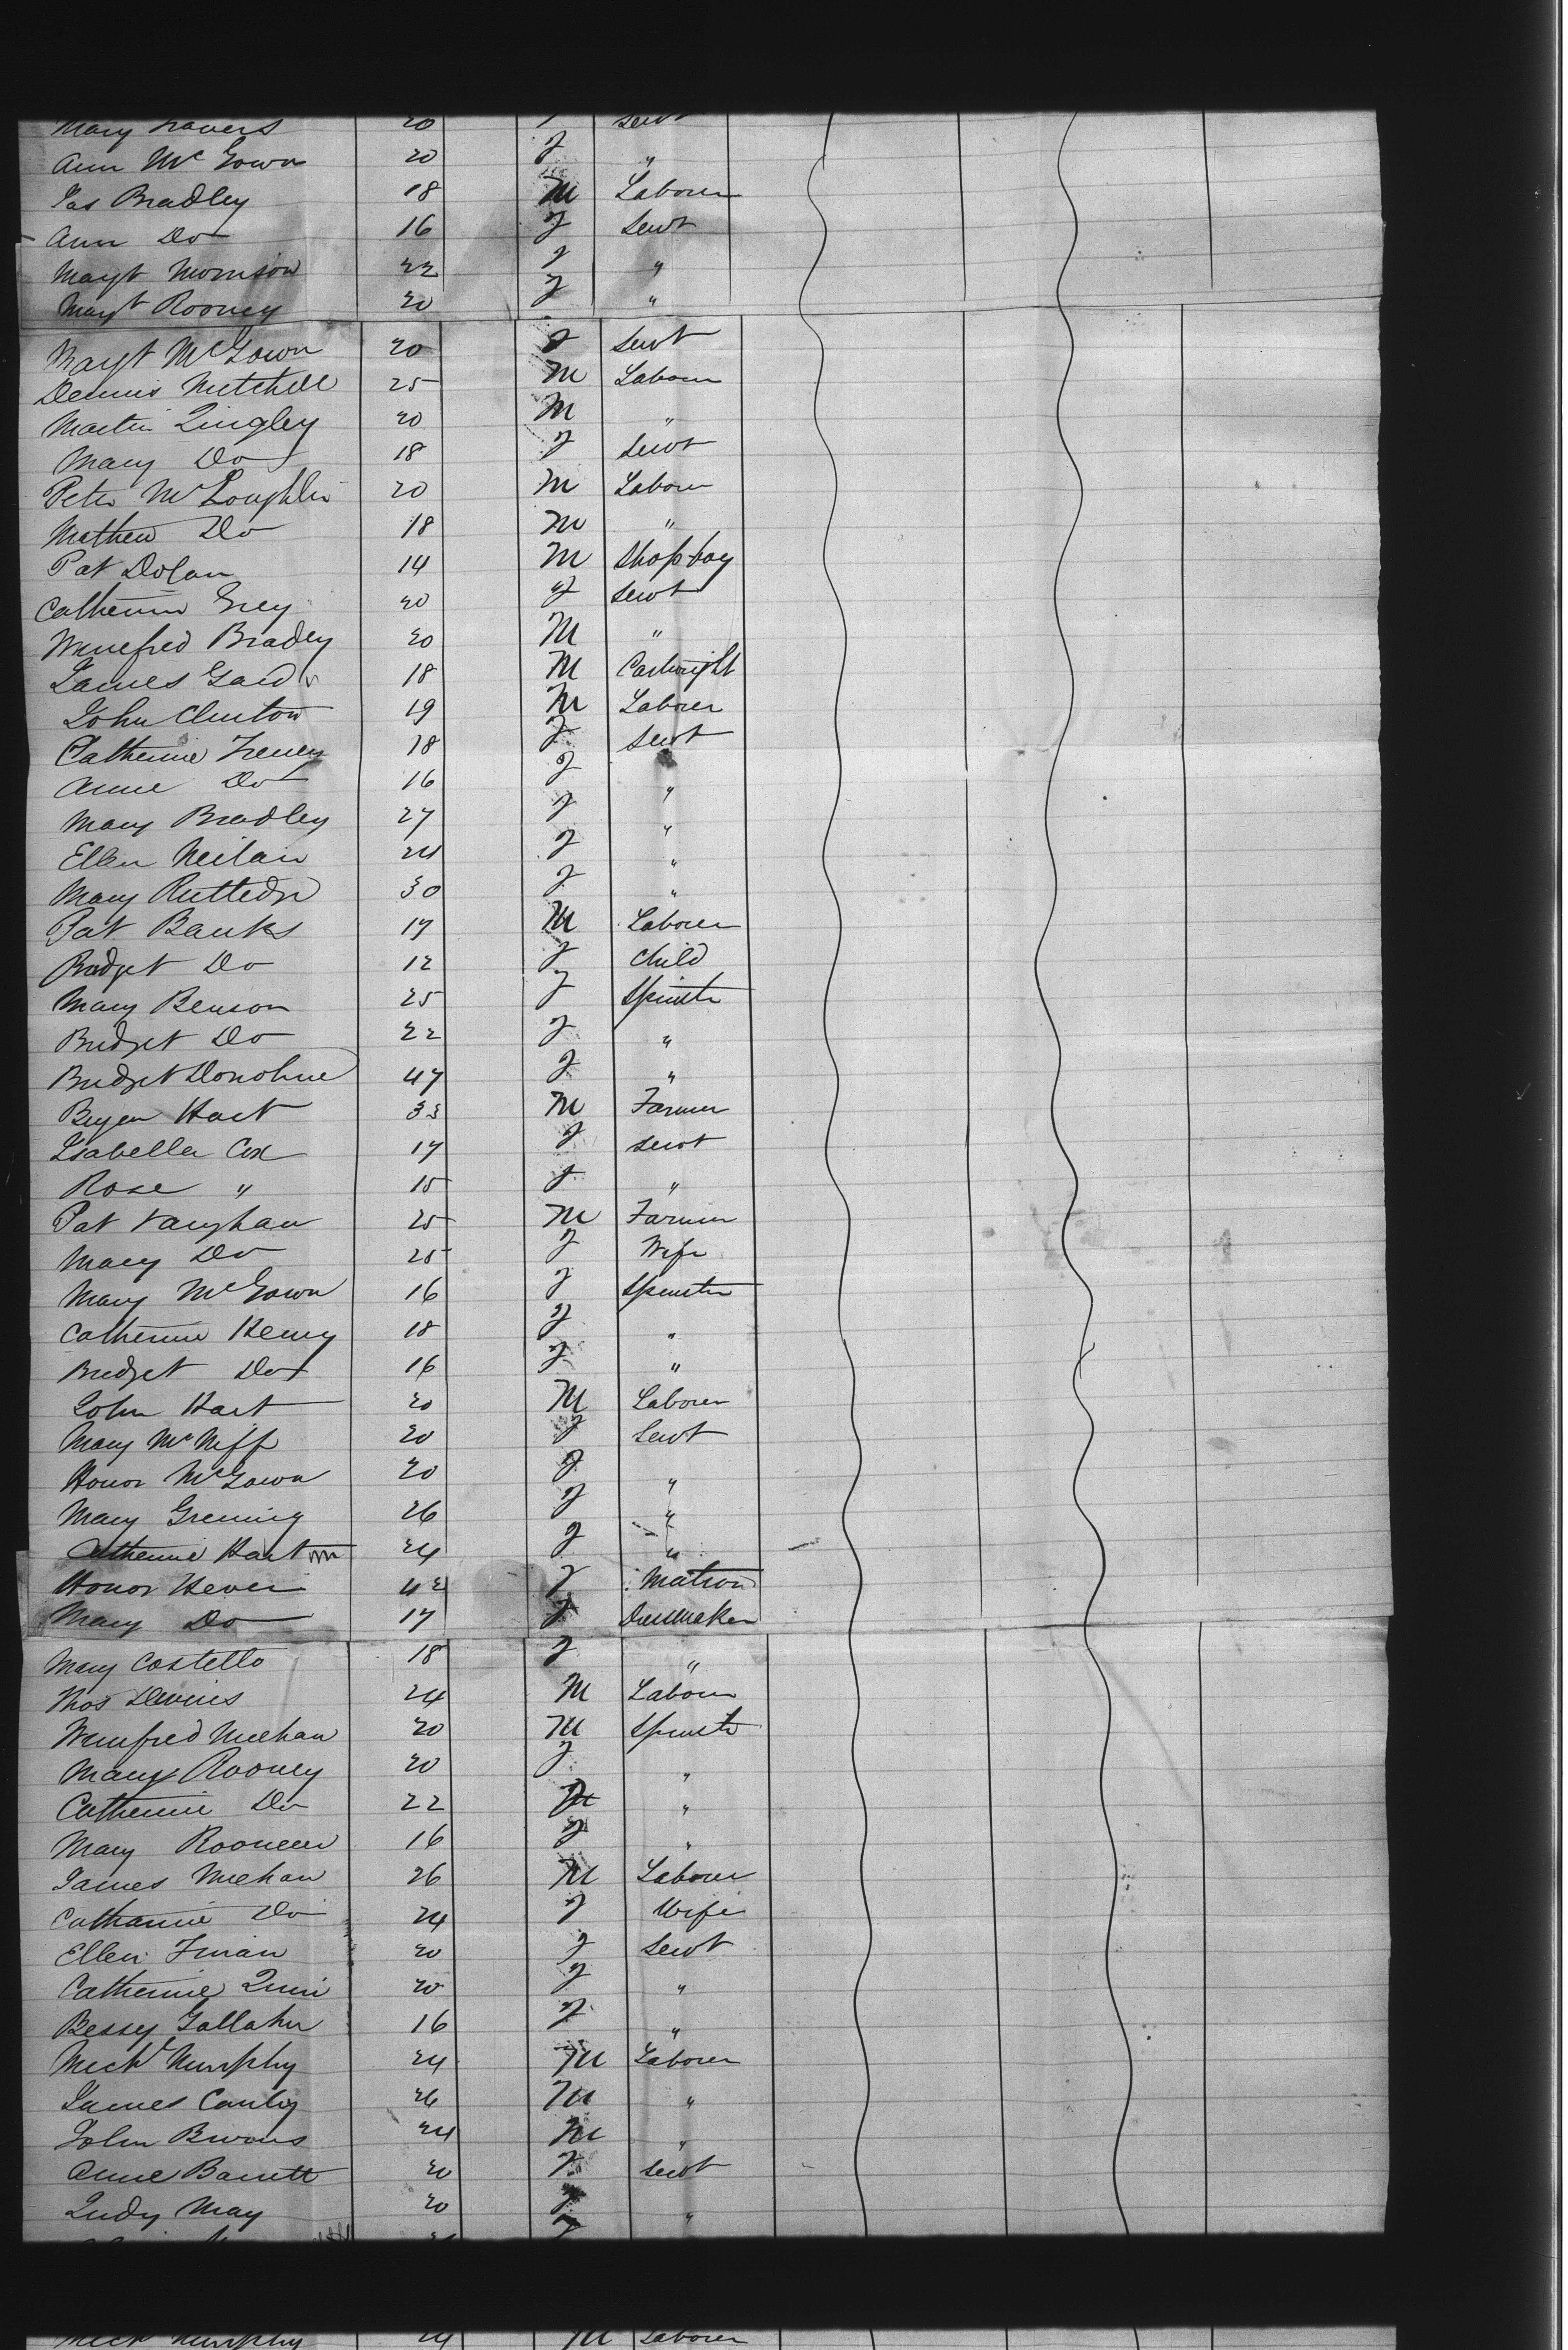 Mary Travers 20 F Servt
Ann McGown 20 F "
Jas Bradley 18 M Laborer
Ann Do 16 F Servt
Margt Morrison 22 F "
Margt Rooney 20 F "
Margt McGown 20 F Servt
Dennis Mitchell 25 M Laborer
Martin Quigley 20 M "
Mary Do 18 F Servt
Peter McLoughlin 20 M Laborer
Mathew Do 18 M "
Pat Dolan 14 M Shop boy
Catherine Grey 20 F Servt
Winefred Bradey 20 M "
James 18 M Cartwright
John Clinton 19 M Laborer
Catherine 18 F Servt
Anne Do 16 F "
Mary Bradley 27 F "
Ellen Neilan 24 F "
Mary 30 F "
Pat Banks 17 M Laborer
Bridget Do 12 F Child
Mary Benson 25 F Spinster
Bridget Do 22 F "
Bridget Donohue 47 F "
Bryan Hart 33 M Farmer
Isabella Cox 17 F Servt
Rose " 15 F "
Pat Vaughan 25 M Farmer
Mary Do 25 F Wife
Mary McGown 16 F Spinster
Catherine Henry 18 F "
Bridget Do 16 F "
John Hart 20 M Laborer
Mary McNiff 20 F Servt
Honor McGown 20 F "
Mary 26 F "
Catherine Hart 24 F "
Honor 42 F Matron
Mary Do 17 F Dressmaker
Mary Costello 18 F "
Thos Devins 24 M Laborer
Winefred Meehan 20 M Spinster
Mary Rooney 20 F "
Catherine Do 22 "
Mary 16 F "
James Meehan 26 M Laborer
Catharine Do 24 F Wife
Ellen Finan 20 F Servt
Catherine Quin 20 F "
Bessy Gallaher 16 F "
Michl Murphy 24 M Laborer
James 26 M "
John 24 M "
Anne Barrett 20 F Servt
Judy May 20 F "
Michl Murphy 24 M Laborer